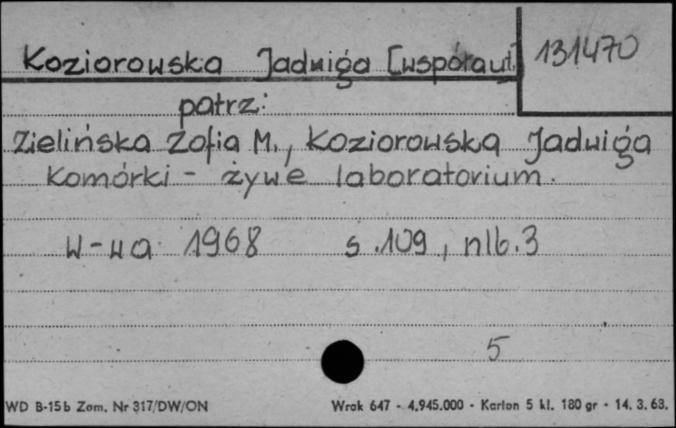 Koziorowska Jadwiga [współaut]
131470
patrz:
Zielińska Zofia M., Koziorowska Jadwiga
Komórki - żywe laboratorium.
W-wa 1968 s. 109, nlb. 3
5
WD B-15b Zam. Nr 317/DW/ON
Wrok 647 - 4.945.000 - Karton 5 kl. 180 gr - 14. 3. 63.